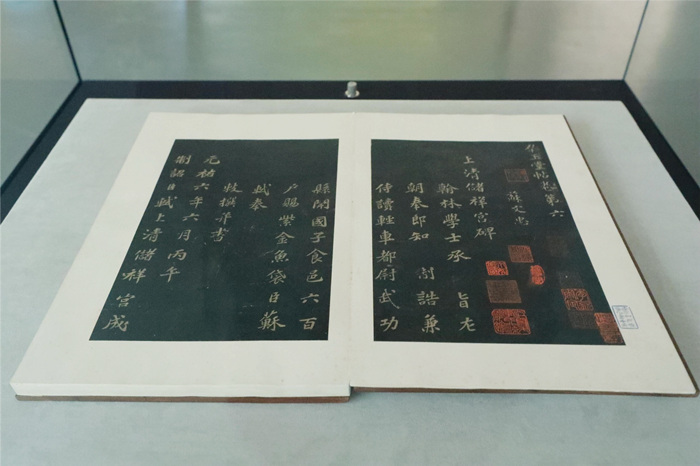 堂帖卷第六
蘇文忠
上清儲祥宮碑
翰林學士承 旨左
朝奉郎知 制誥兼
侍讀輕車都尉武功
縣開國子食邑六百
户賜紫金魚袋臣蘇
軾奉
敕撰并書
元祐六年六月丙午
制詔臣軾上清儲祥宮成